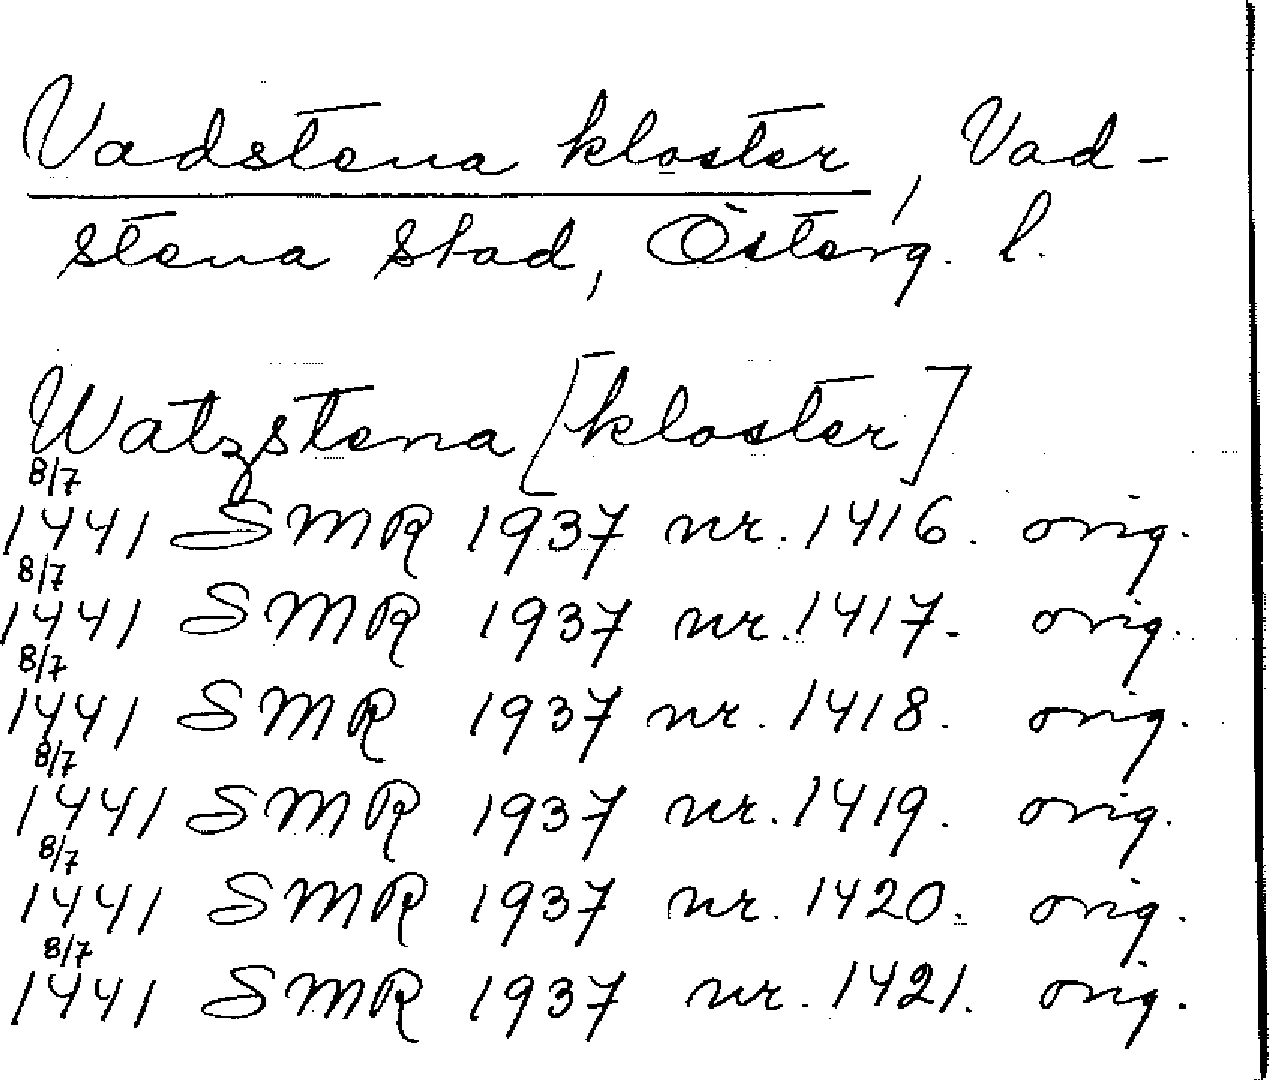 Vadstena kloster, Vad-
stena stad, Österg. l.
Watzstena [kloster]
8/7
1441 SMR 1937 nr. 1416. orig.
8/7
1441 SMR 1937 nr. 1417. orig.
8/7
1441 SMR 1937 nr. 1418. orig.
8/7
1441 SMR 1937 nr. 1419. orig.
8/7
1441 SMR 1937 nr. 1420. orig.
8/7
1441 SMR 1937 nr. 1421. orig.